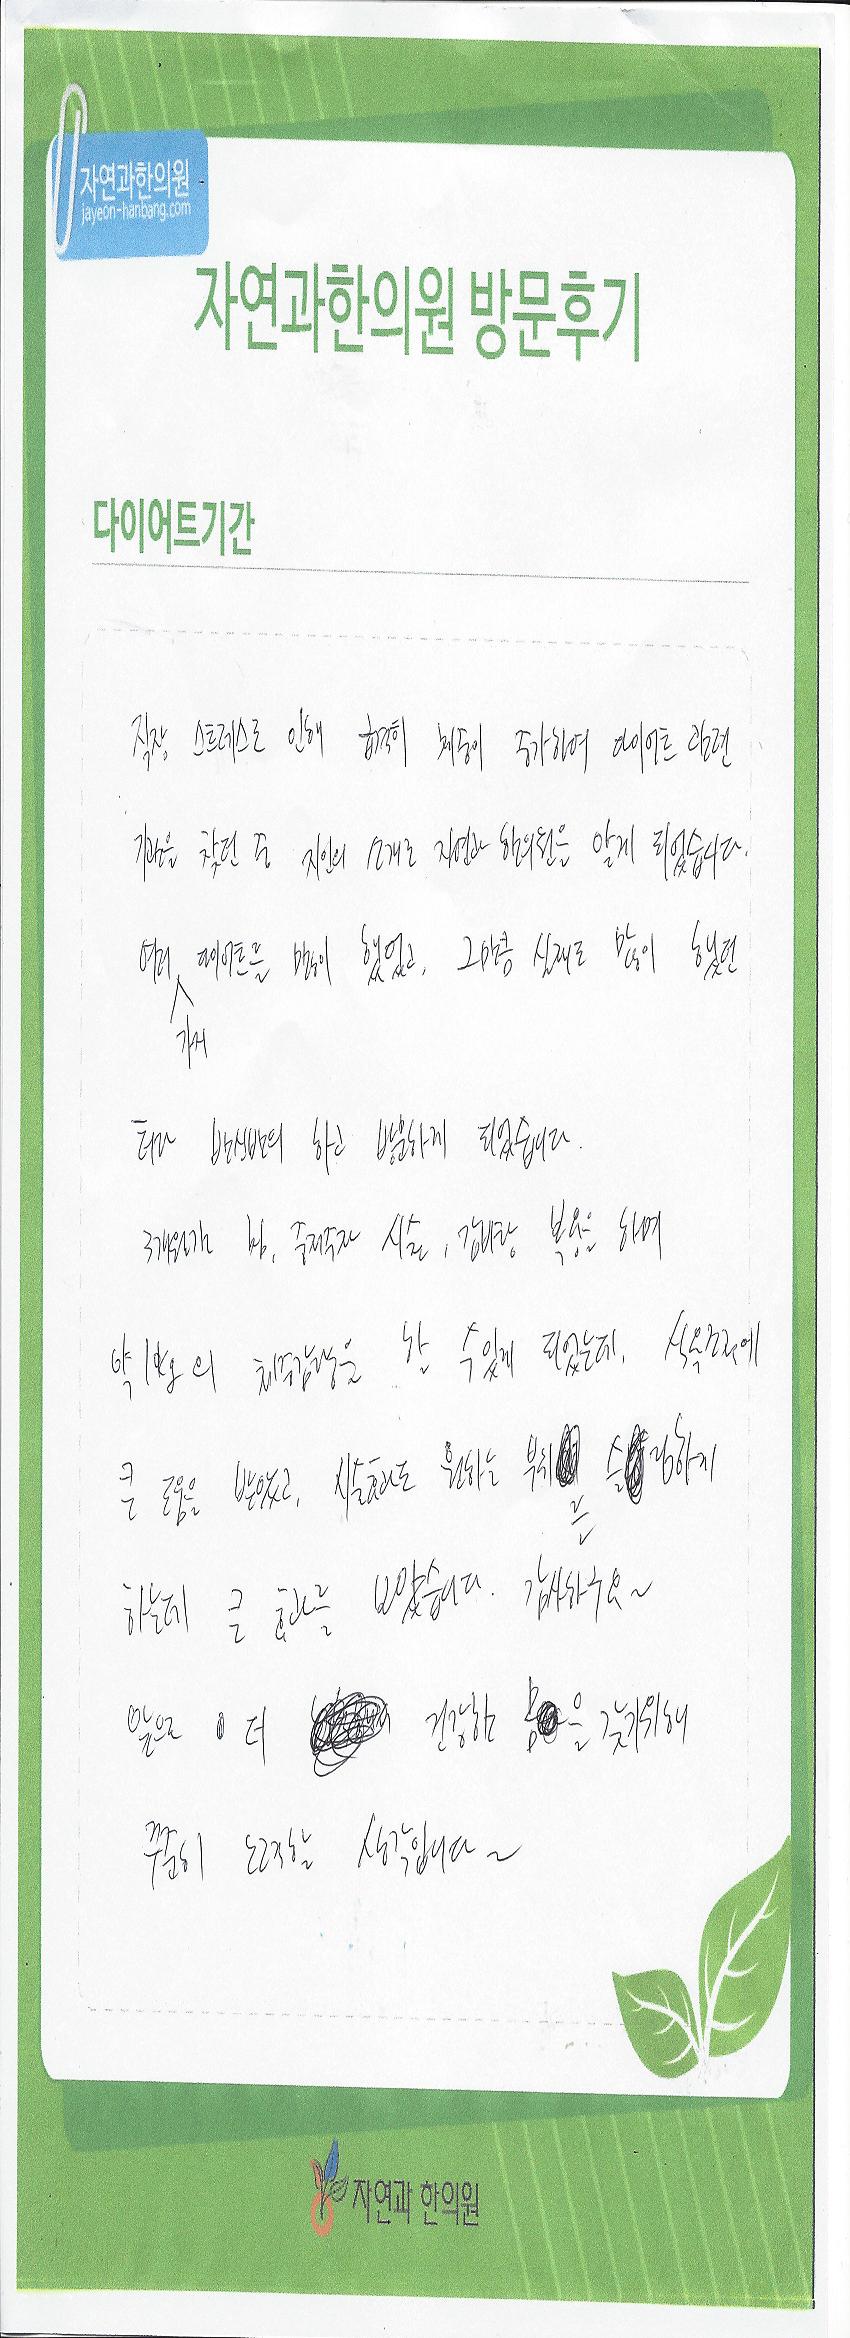 자연과한의원
jayeon-hanbang.com
자연과한의원 방문후기
다이어트기간
직장 스트레스로 인해 급격히 체중이 증가하여 다이어트 관련
기관을 찾던 중 지인의 소개로 자연과 한의원을 알게 되었습니다.
여러 다이어트를 많이 했었고, 그만큼 실패도 많이 했던
가지
터라 반신반의 하고 방문하게 되었습니다.
3개월간 침, 중저주파 시술, 감비탕 복용을 하며
약 1kg 의 체중감량을 할 수 있게 되었는데, 식욕조절에
큰 도움을 받았고, 시술효과도 원하는 부위 슬림하게
를
하는데 큰 효과를 보았습니다. 감사하구요~
앞으로 더 건강한 몸을 갖기위해
꾸준히 노력할 생각입니다~
자연과 한의원